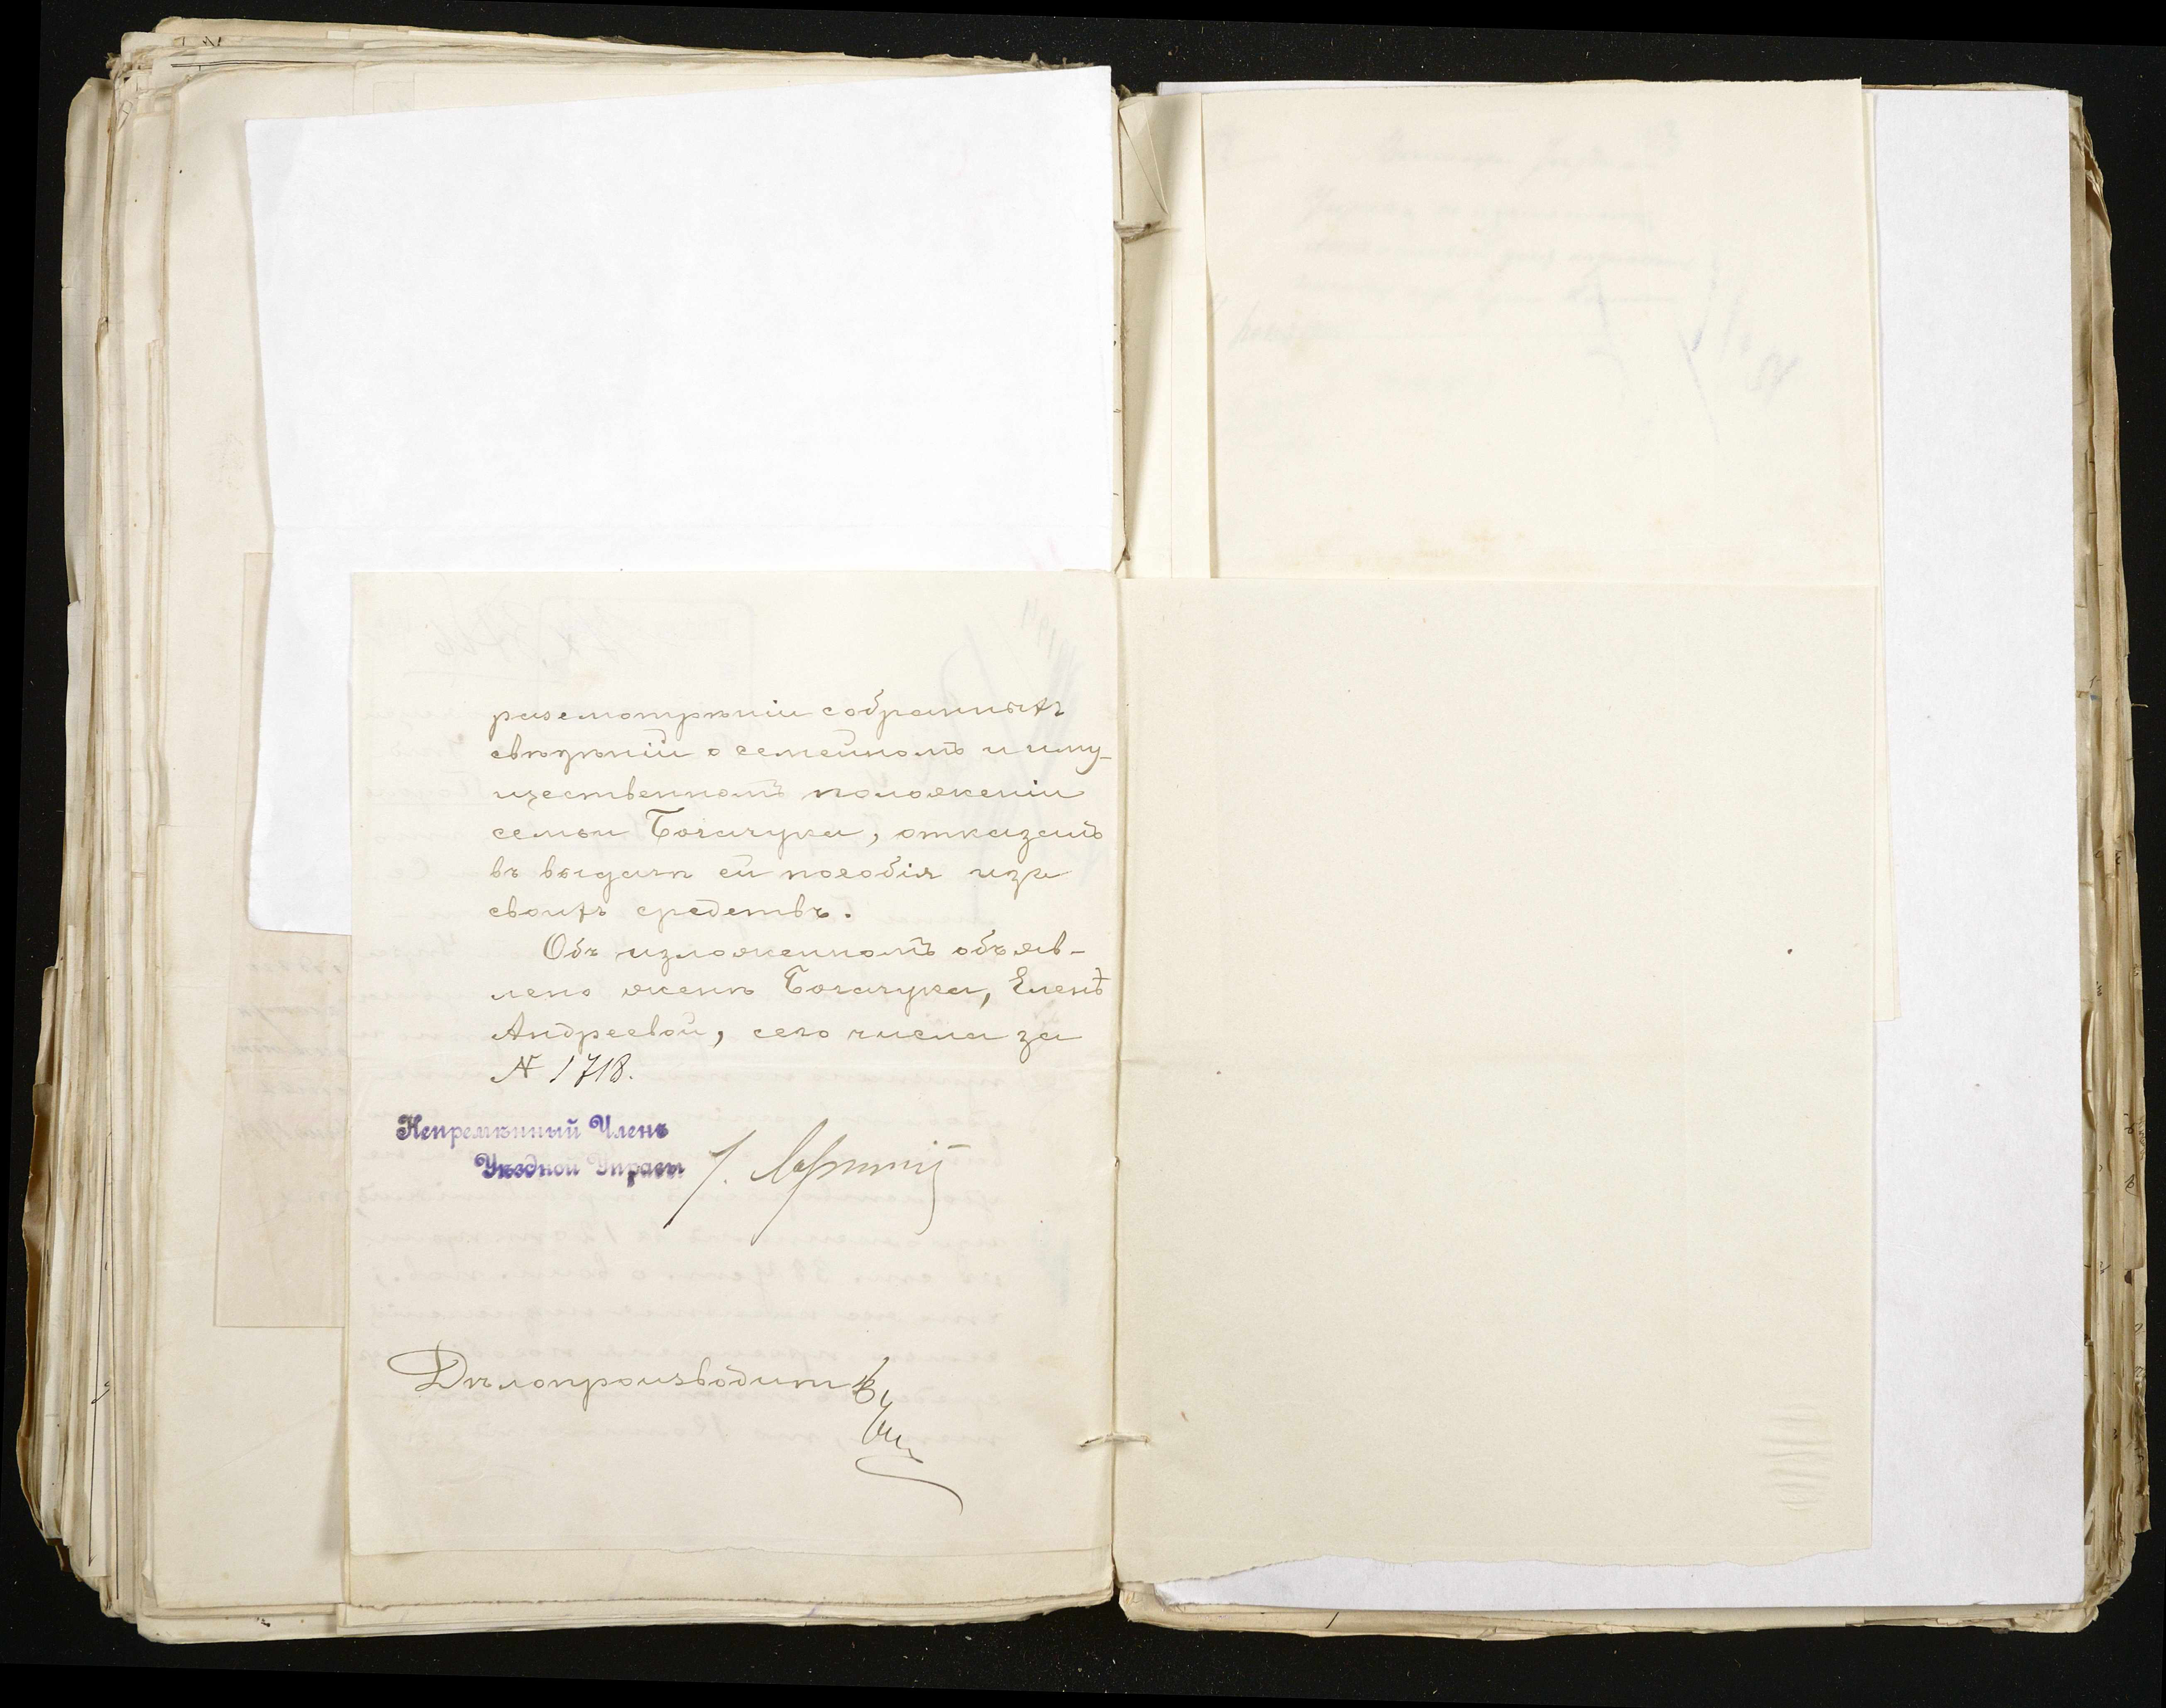 разсмотрѣніи собранныхъ
свѣдѣній о семейномъ и иму-
щественномъ положеніи
семьи Богачука, отказалъ
въ выдачѣ ей пособія изъ
своихъ средствъ.
Объ изложенномъ объяв-
лено женѣ Богачука, Еленѣ
Андреевой, сего числа за
№ 1718.
Непремѣнный Членъ
Уѣздной Управы
Дѣлопроизводитель